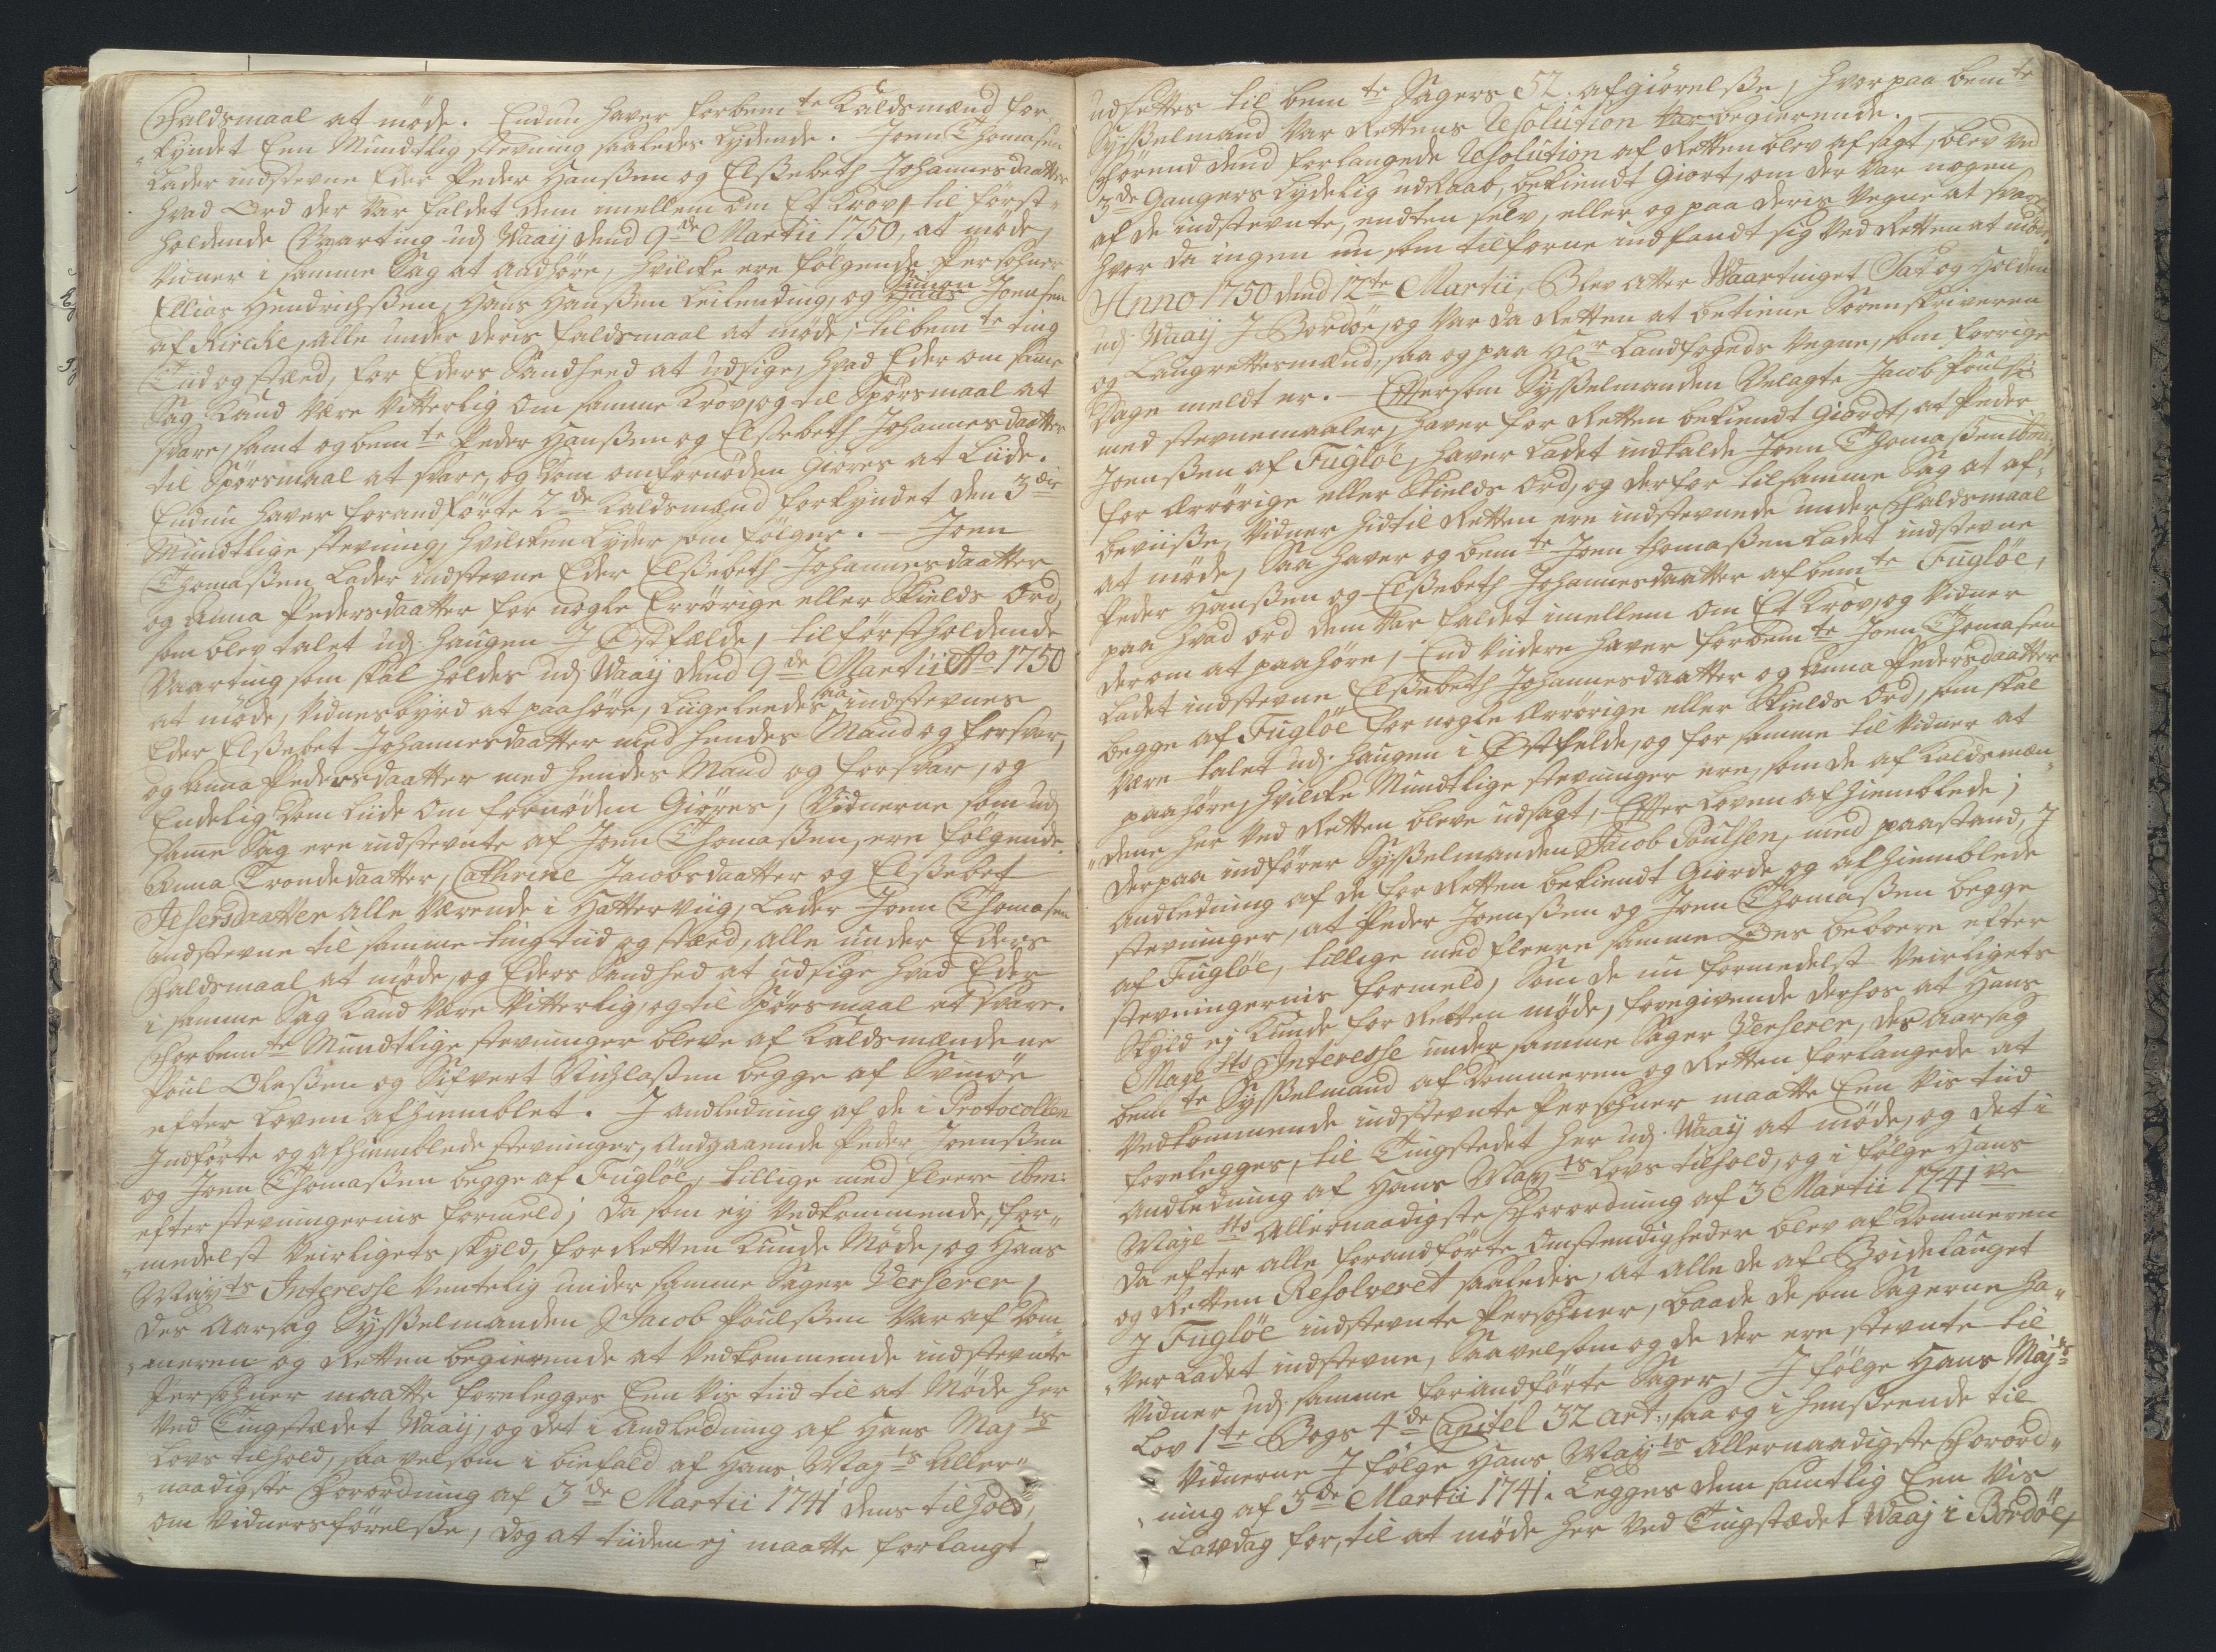 Faldsmaal at möde. Endnu haver forbemte Kaldsmænd for-
„kyndet Een Mundtlig stevning saaledes lydende. Joen Thomasen
Lader indstevne Eder Peder Hanßen og Elßebeth Johannesdaatter
hvad Ord der var faldet dem imellem om Et Krov, til först-
holdende Vaarting udj Waaij dend 9de Martii 1750, at möde,
Vidner i samme Sag at anhöre, hvilcke ere fölgende Persohner
Ellias Hendrichßen, Hans Hanßen Leilending, og Simon Joensen
af Kircke, alle under deris faldsmaal at möde, til bemte ting
Tiid og stæd, for Eders Sandheed at udsige, hvad Eder om samme
Sag Kand være Vitterlig om samme Krov, og til Spörsmaal at
svare, samt og bemte Peder Hanßen og Elßebeth Johannesdaatter
til Spörsmaal at svare, og Dom om fornöden giöres at Liide.
Endnu haver forandförte 2de Kaldsmænd forkyndet den 3die
Mundtlige stevning, hvilcken lyder som fölger. — Joen
Thomaßen Lader indstevne Eder Elßebeth Johannesdaatter
og Anna Pedersdaatter for nogle Errörige eller Skields Ord,
som blev talet udj Haugen J Østfælde, til förstholdende
Vaarting som skal holdes udj Waaij dend 9de Martii Ao 1750
at möde, Vidnesbyrd at paahöre, Liigeleedes aa indstevnes
Eder Elßebet Johannesdaatter med hendes Mand og forsvar,
og Anna Pedersdaatter med hendes Mand og forsvar, og
Endelig Dom Liide om fornöden Giöres, Vidnerne som udj
samme Sag ere indstevnte af Joen Thomaßen, ere fölgende.
Anna Trondedaatter, Cathrine Jacobsdaatter og Elßebet
Jesersdaatter alle Værende i Hattervüg, Lader Joen Thomasen
indstevne til samme ting tiid og stæd, alle under Eders
Faldsmaal at möde, og Eders Sandhed at udsige hvad Eder
i samme Sag Kand være Vitterlig, og til Spörsmaal at svare.
Forbemte Mundtlige stevninger bleve af Kaldsmændene
Poul Oleßen og Sifvert Nichlaßen begge af Svinöe
efter Loven afhiemblet. J andledning af de i Protocollen
Indförte og afhiemblede stevninger, Andgaaende Peder Joenßen
og Joen Thomaßen begge af Fuglöe, tillige med fleere ibm:
efter stevningernis formeld; da som ey Vedkommende, for-
„medelst Veirligets skyld, for Retten Kunde Möde, og Hans
Mayts Interesse Ventelig under samme Sager Verserer,
des Aarsag Sysselmanden Jacob Poulßen Var af Dom-
„meren og Retten begierende at Vedkommende indstevnte
Persohner maatte forelegges Een Vis tiid til at Möde her
Ved Tingstædet Waaij, og det i Andledning af Hans Mayts
Lovs tilhold, saa velsom i biefald af Hans Mayts Aller-
„naadigste Forordning af 3de Martii 1741 dens tilhold,
om Vidnersförelße, dog at tiiden ej maatte forlangt
udsettes til bemte Sagers 52. afgiörelße, hvorpaa bemte
Sysselmand Var Rettens Resolution begierende. —
Förend dend forlangede Resolution af Retten blev afsagt, blev ved
3de Gangers Lydelig udRaab, bekiendt Giort, om der Var nogen
af de indstevnte, endten selv, eller og paa deris Vegne at svare
hvor da ingen nu som tilforne indfandt sig Ved Retten at möde.
Anno 1750 dend 12te Martii, Blev atter Waartinget Sat og Holden
udj Waaij J Bordöe, og Var da Retten at betiene Sorenskriveren
og Laugrettesmænd, saa og paa Hr Landfogeds Vegne, som forrige
Dage meldt er. — Eftersom Sysselmanden Velagte Jacob Poulsen
med stevnemaaler, haver for Retten bekiendt Giordt, at Peder
Joenßen af Fuglöe, haver Ladet indkalde Joen Thomaßen ibm:
for Ærrörige eller Skields Ord, og derfor til samme Sag at af-
beviiße, Vidner hidtil Retten ere indstevnede under Faldsmaal
at möde, Saa haver og bemte Joen Thomaßen Ladet indstevne
Peder Hanßen og Elßebeth Johannesdaatter af bemte Fuglöe,
paa hvad ord dem Var faldet imellem om Et Krov, og Vidner
derom at paahöre, End Viidere haver forbemte Joen Thomasen
Ladet indstevne Elßebeth Johannesdaatter og Anna Pedersdaatter
begge af Fuglöe for nogle Ærrörige eller Skields Ord, som skal
være talet udj Haugen i Østfelde, og for samme til Vidner at
paahöre, hvilcke Mundtlige stevninger ere, som de af Kaldsmæn-
„dene her Ved Retten bleve udsagt, Efter Loven afhiemblede;
Derpaa indförer Sysselmanden Jacob Poulsen, med paastand, J
Andledning af de for Retten bekiendt Giorde og afhiemblede
stevninger, at Peder Joenßen og Joen Thomaßen begge
af Fuglöe, tillige med fleere samme Öes beboere efter
stevningernis formeld, Som de nu formedelst Veirligets
skyld ey Kunde for Retten möde, foregivende derhos at Hans
Mayestts Interesse under samme Sager Verserer, des Aarsag
bemte Sysselmand af Dommeren og Retten forlangede at
Vedkommende indstevnte Persohner maatte Een Vis tiid
forelegges, til Tingstedet her udj Waaij at möde, og det i
Andledning af Hans Mayts Lovs tilhold, og i fölge Hans
Majestts Allernaadigste Forordning af 3 Martii 1741 ve
Da efter alle forandförte Omstendigheder blev af Dommeren
og Retten Resolveret saaledis, at alle de af Boidelauget
J Fuglöe indstevnte Persohner, baade de som Sagerne ha-
„ver Ladet indstevne, Saavelsom og de der ere stevnte til
Vidner udj samme forandförte Sager, J fölge Hans Majts
Lov 1te Bogs 4de Capitel 32 Art:, saa og i henseende til
Vidnerne J fölge Hans Mayts Allernaadigste Forord-
„ning af 3de Martii 1741. Legges dem samtlig Een Vis
Lavdag for, til at möde her Ved Tingstædet Waaj i Bordöe,